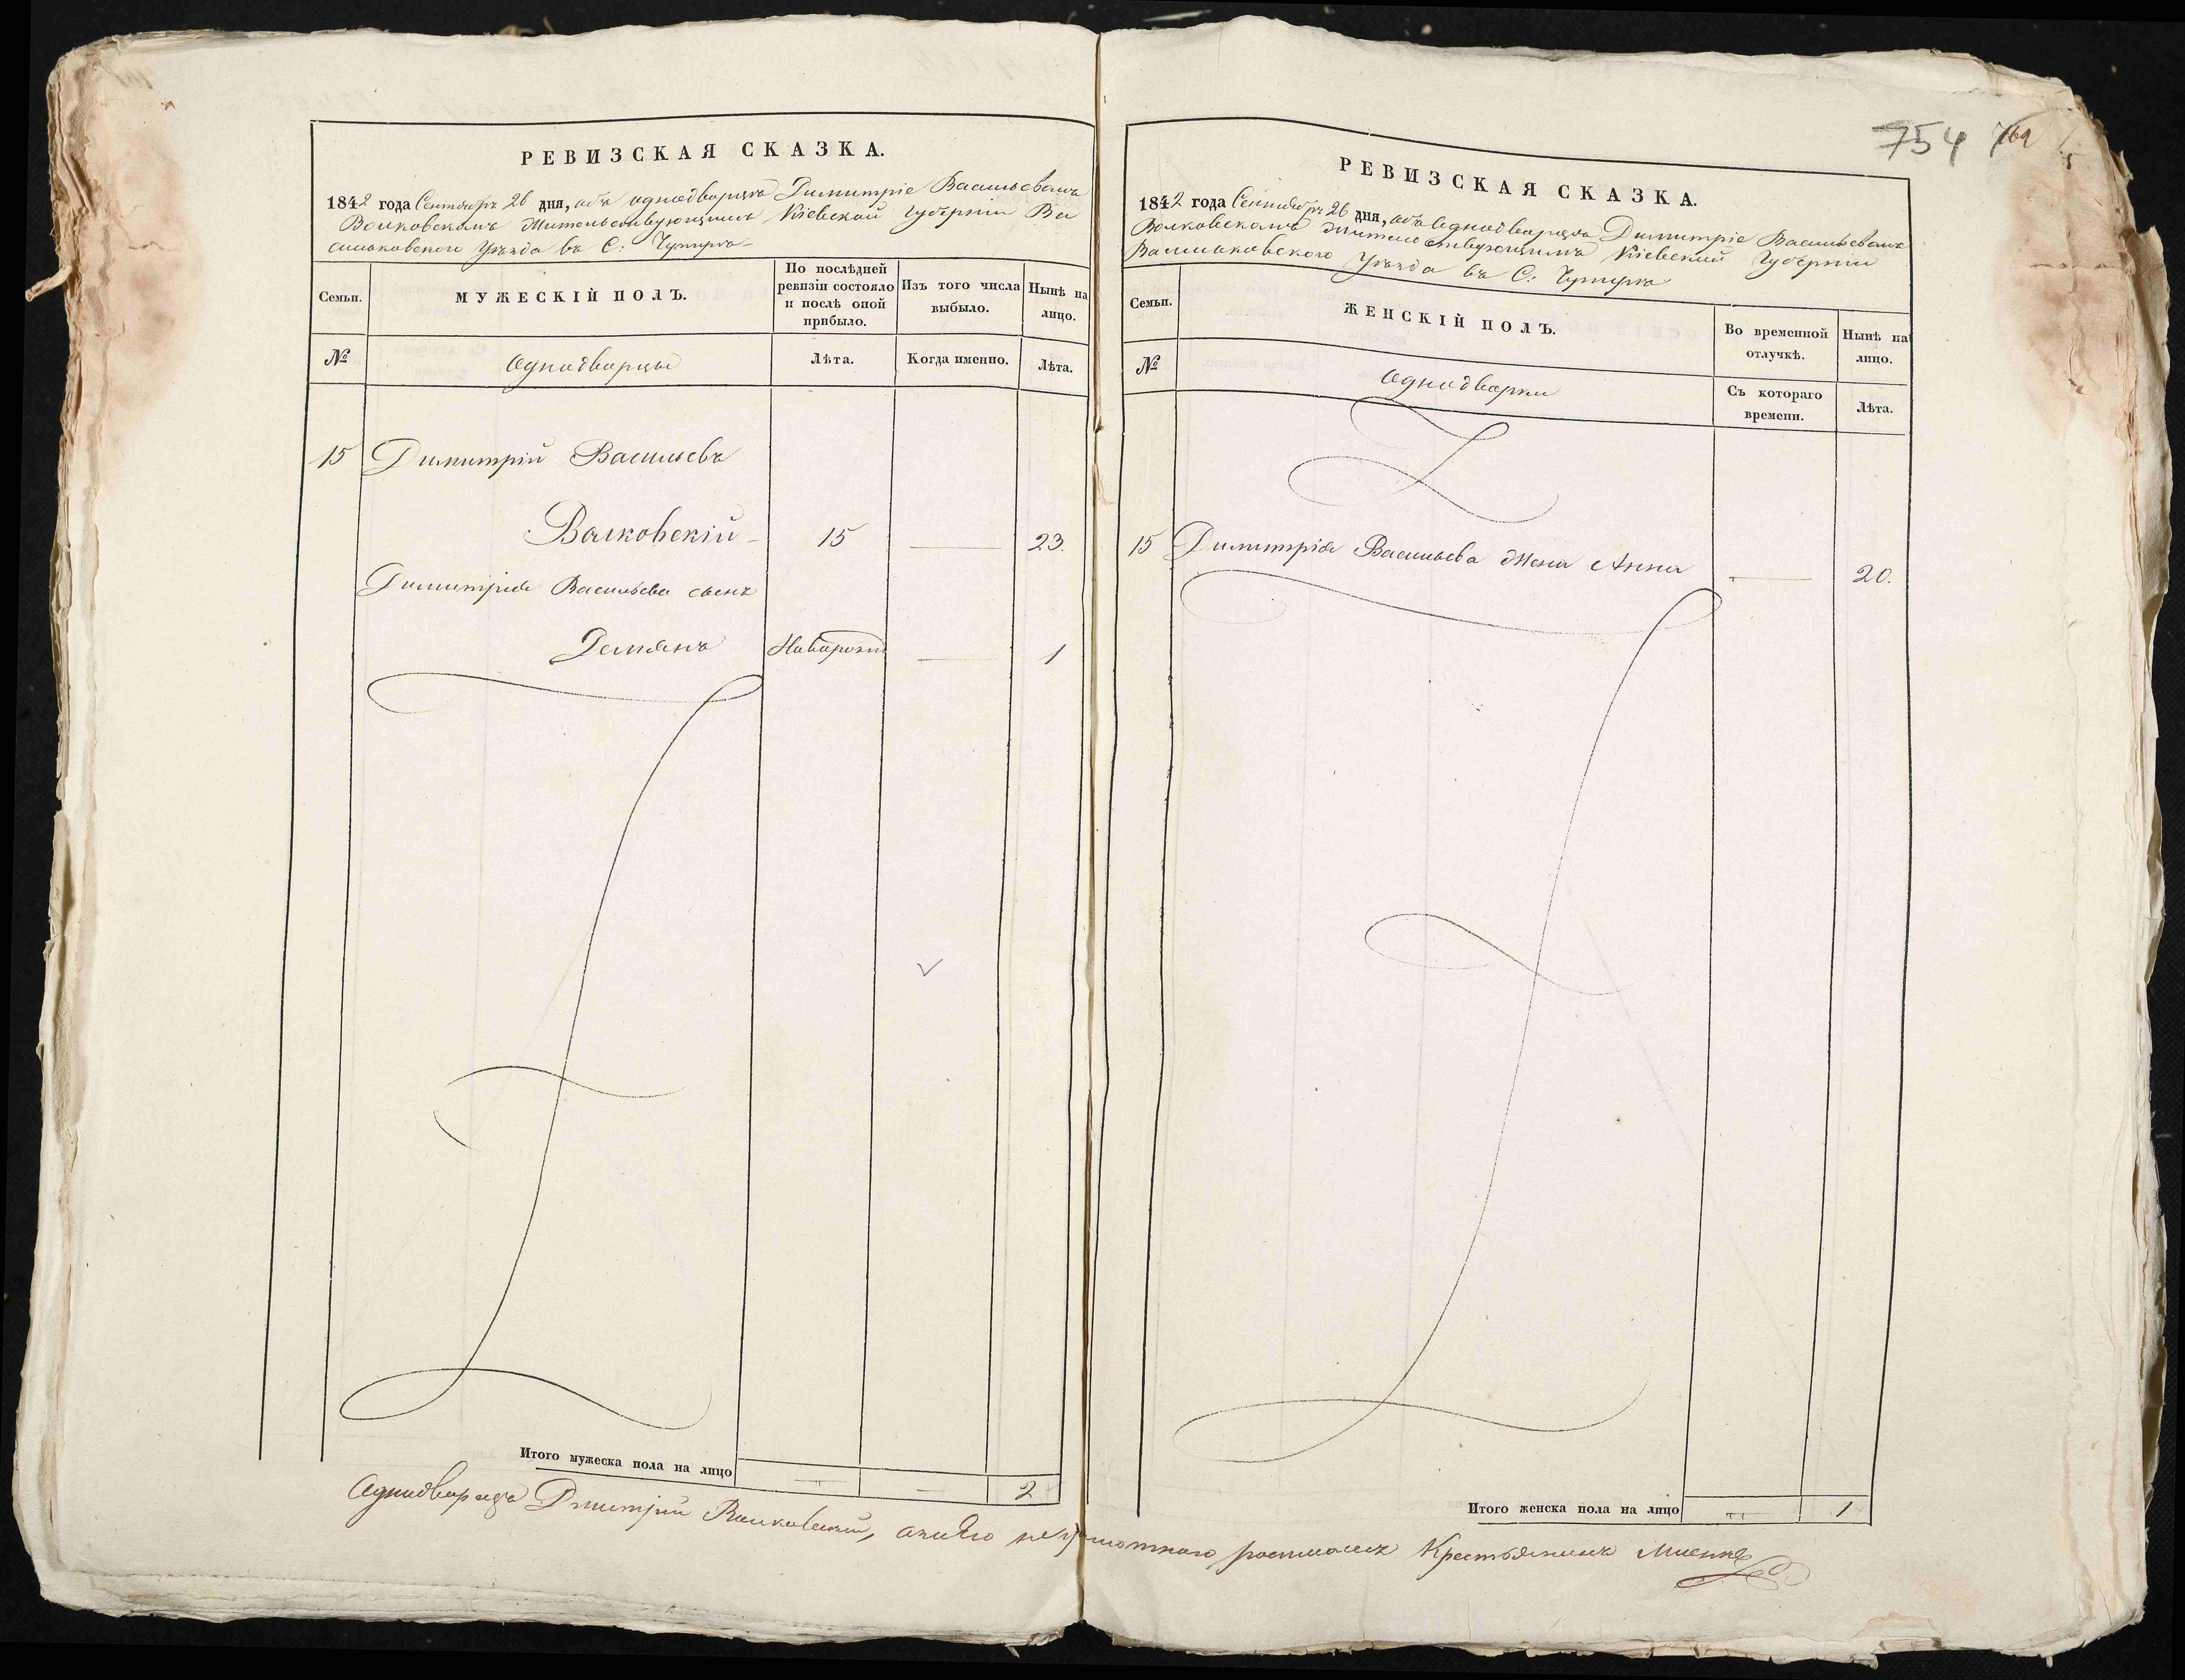 РЕВИЗСКАЯ СКАЗКА.
1842 года Сентября 26 дня, объ однодворцѣ Димитріе Васильевѣ
Волковскомъ Жительствующимъ Кіевской губерніи Ва
сильковского Уѣзда въ С:
Семьи.
МУЖЕСКІЙ ПОЛЪ.
По послѣдней ревизіи состояло и послѣ оной прибыло.
Изъ того числа выбыло.
Нынѣ на лицо.
№
Однодворцы
Лѣта.
Когда именно.
Лѣта.
15 Димитрій Васильевъ
Волковскій 15 — 23.
Димитрія Васильева сынъ
Демянъ Новорожд — 1
Итого мужеска пола на лицо — — 2
754 769
РЕВИЗСКАЯ СКАЗКА.
1842 года Сентября 26 дня, объ Однодворцѣ Димитріе Васильевѣ
Волковскомъ Жительствующимъ Кіевской Губерніи
Васильковского Уѣзда въ С:
Семьи.
ЖЕНСКІЙ ПОЛЪ.
Во временной отлучкѣ.
Нынѣ на лицо.
№
Однодворки
Съ котораго времени.
Лѣта.
15 Димитрія Васильева Жена Анна — 20.
Итого женска пола на лицо — 1
Однодворецъ Дмитрій Волковскій, а за его неграмотного росписался Крестьянинъ